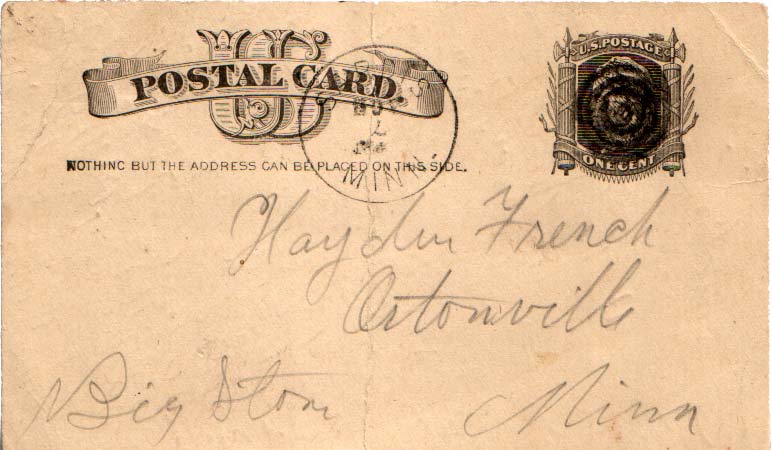 U.S. POSTAGE
POSTAL CARD.
NOTHING BUT THE ADDRESS CAN BE PLACED ON THIS SIDE.
MINN.
ONE CENT
Hayden French
Ortonville
Big Stone
Minn